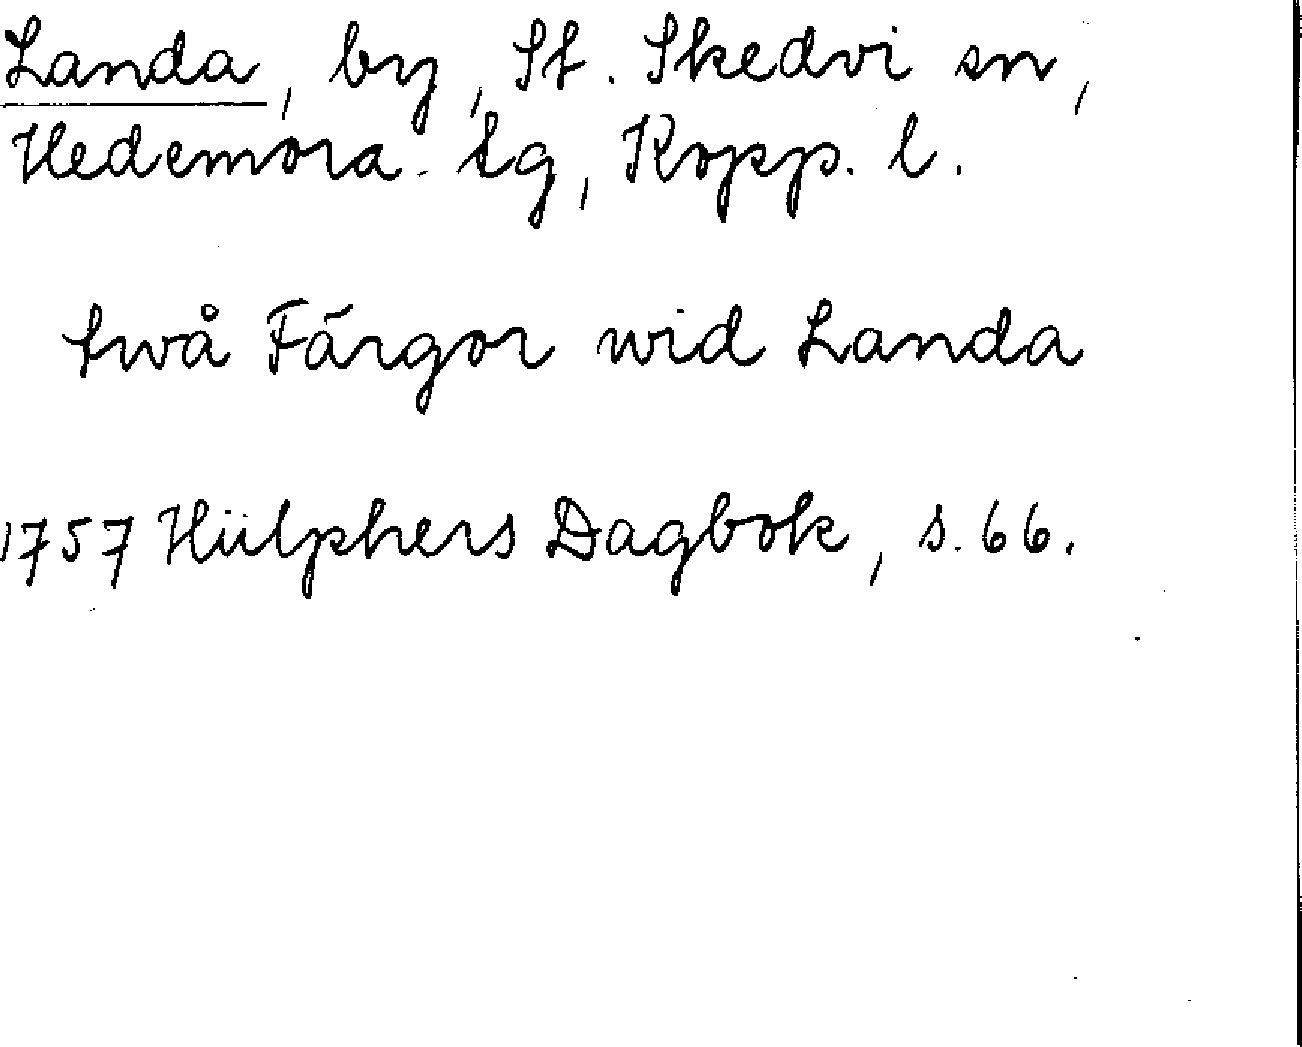 Landa, by, St. Skedvi sn,
Hedemora tg, Kopp. l.
twå Färgor wid Landa
1757 Hülphers Dagbok, s. 66.